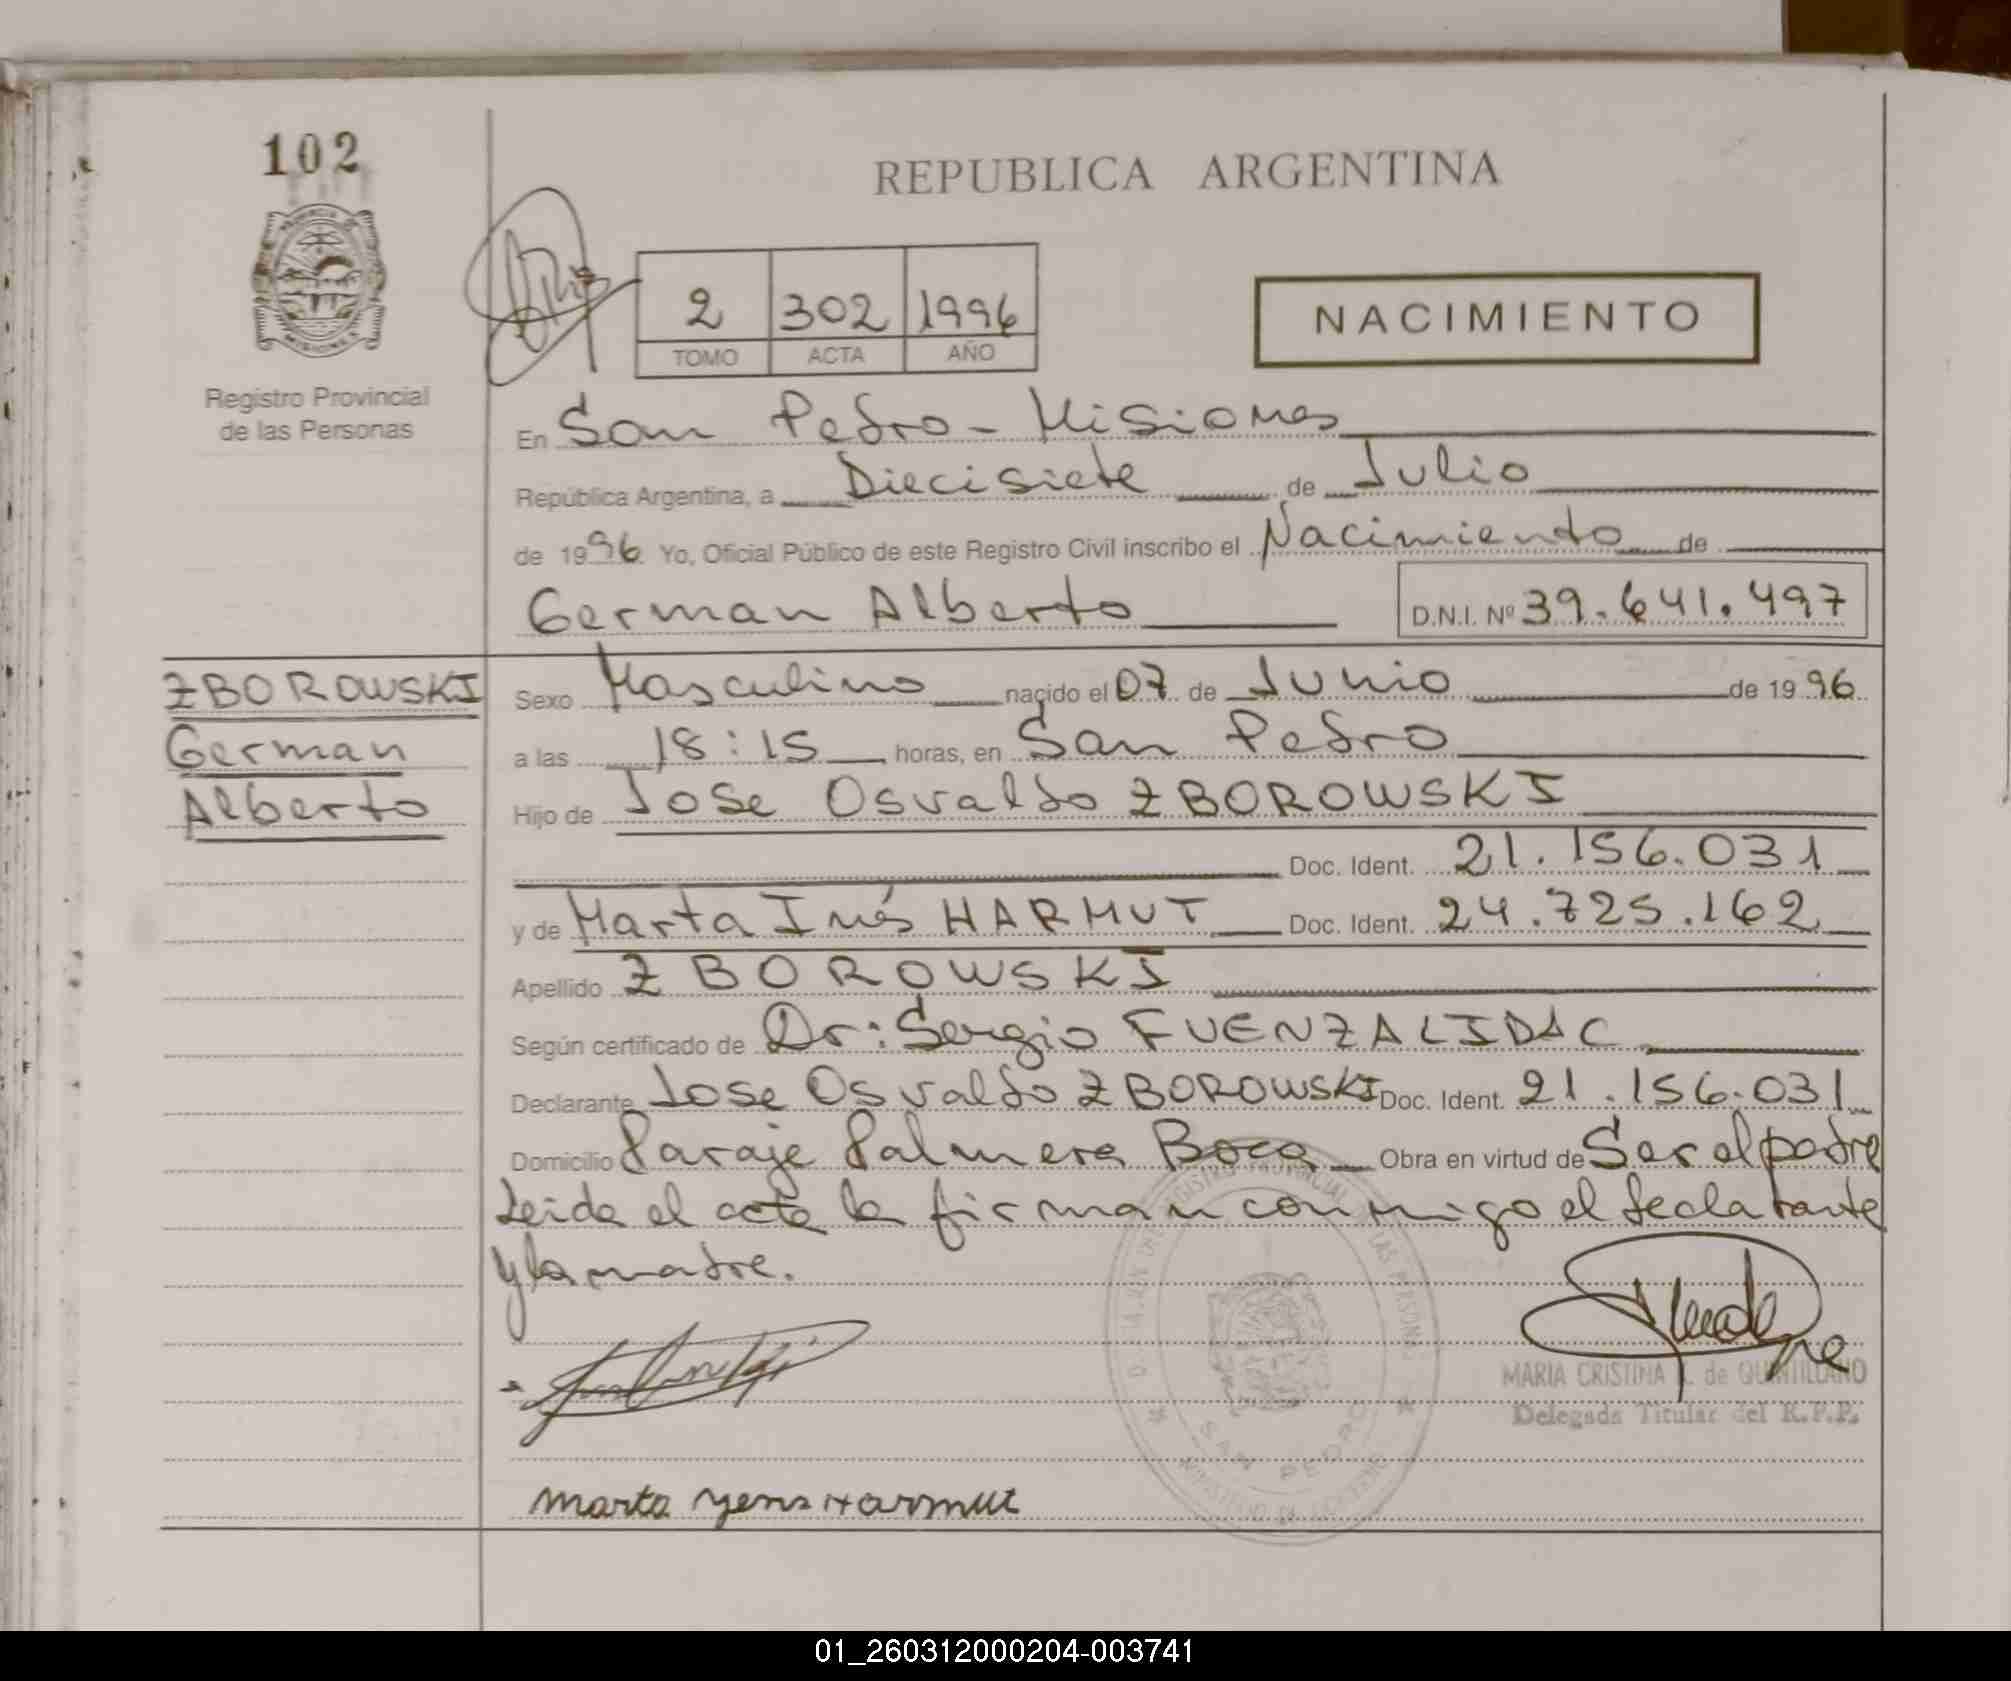 102
REPUBLICA ARGENTINA
PROVINCIA DE
MISIONES
2 302 1996
TOMO ACTA AÑO
NACIMIENTO
Registro Provincial
de las Personas
En San Pedro - Misiones
República Argentina, a Diecisiete de Julio
de 1996 Yo, Oficial Público de este Registro Civil inscribo el Nacimiento de
German Alberto D.N.I. Nº 39.641.497
ZBOROWSKI
German
Alberto
Sexo Masculino nacido el 07 de Junio de 1996
a las 18:15 horas, en San Pedro
Hijo de Jose Osvaldo ZBOROWSKI
Doc. Ident. 21.156.031
y de Marta Inés HARMUT Doc. Ident. 24.725.162
Apellido ZBOROWSKI
Según certificado de Dr: Sergio FUENZALIDAC
Declarante Jose Osvaldo ZBOROWSKI Doc. Ident. 21.156.031
Domicilio Paraje Palmera Boca Obra en virtud de Ser el padre
Leida el acta la firman conmigo el declarante
y la madre.
MARIA CRISTINA de QUINTILLANO
Delegada Titular del R.P.P.
SAN PEDRO
marta yens Harmut
01_260312000204-003741